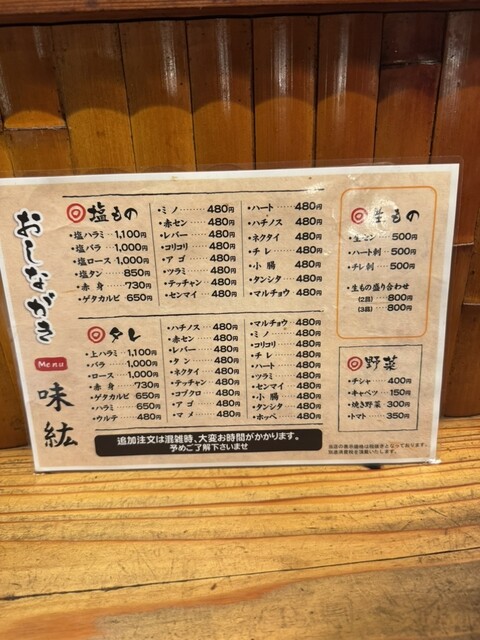 おしながき
Menu
味紘
塩もの
・塩ハラミ 1,100円
・塩バラ 1,000円
・塩ロース 1,000円
・塩タン 850円
・赤身 730円
・ゲタカルビ 650円
・ミノ 480円
・赤セン 480円
・レバー 480円
・コリコリ 480円
・アゴ 480円
・ツラミ 480円
・テッチャン 480円
・センマイ 480円
・ハート 480円
・ハチノス 480円
・ネクタイ 480円
・チレ 480円
・小腸 480円
・タンシタ 480円
・マルチョウ 480円
タレ
・上ハラミ 1,100円
・バラ 1,000円
・ロース 1,000円
・赤身 730円
・ゲタカルビ 650円
・ハラミ 650円
・ウルテ 480円
・ハチノス 480円
・赤セン 480円
・レバー 480円
・タン 480円
・ネクタイ 480円
・テッチャン 480円
・コブクロ 480円
・アゴ 480円
・マメ 480円
・マルチョウ 480円
・ミノ 480円
・コリコリ 480円
・チレ 480円
・ハート 480円
・ツラミ 480円
・センマイ 480円
・小腸 480円
・タンシタ 480円
・ホッペ 480円
生もの
・生セン 500円
・ハート刺 500円
・チレ刺 500円
・生もの盛り合わせ
(2品) 800円
(3品) 800円
野菜
・チシャ 400円
・キャベツ 150円
・焼き野菜 300円
・トマト 350円
追加注文は混雑時、大変お時間がかかります。
予めご了解下さいませ
当店の表示価格は税抜きとなっております。
別途消費税を頂戴いたします。